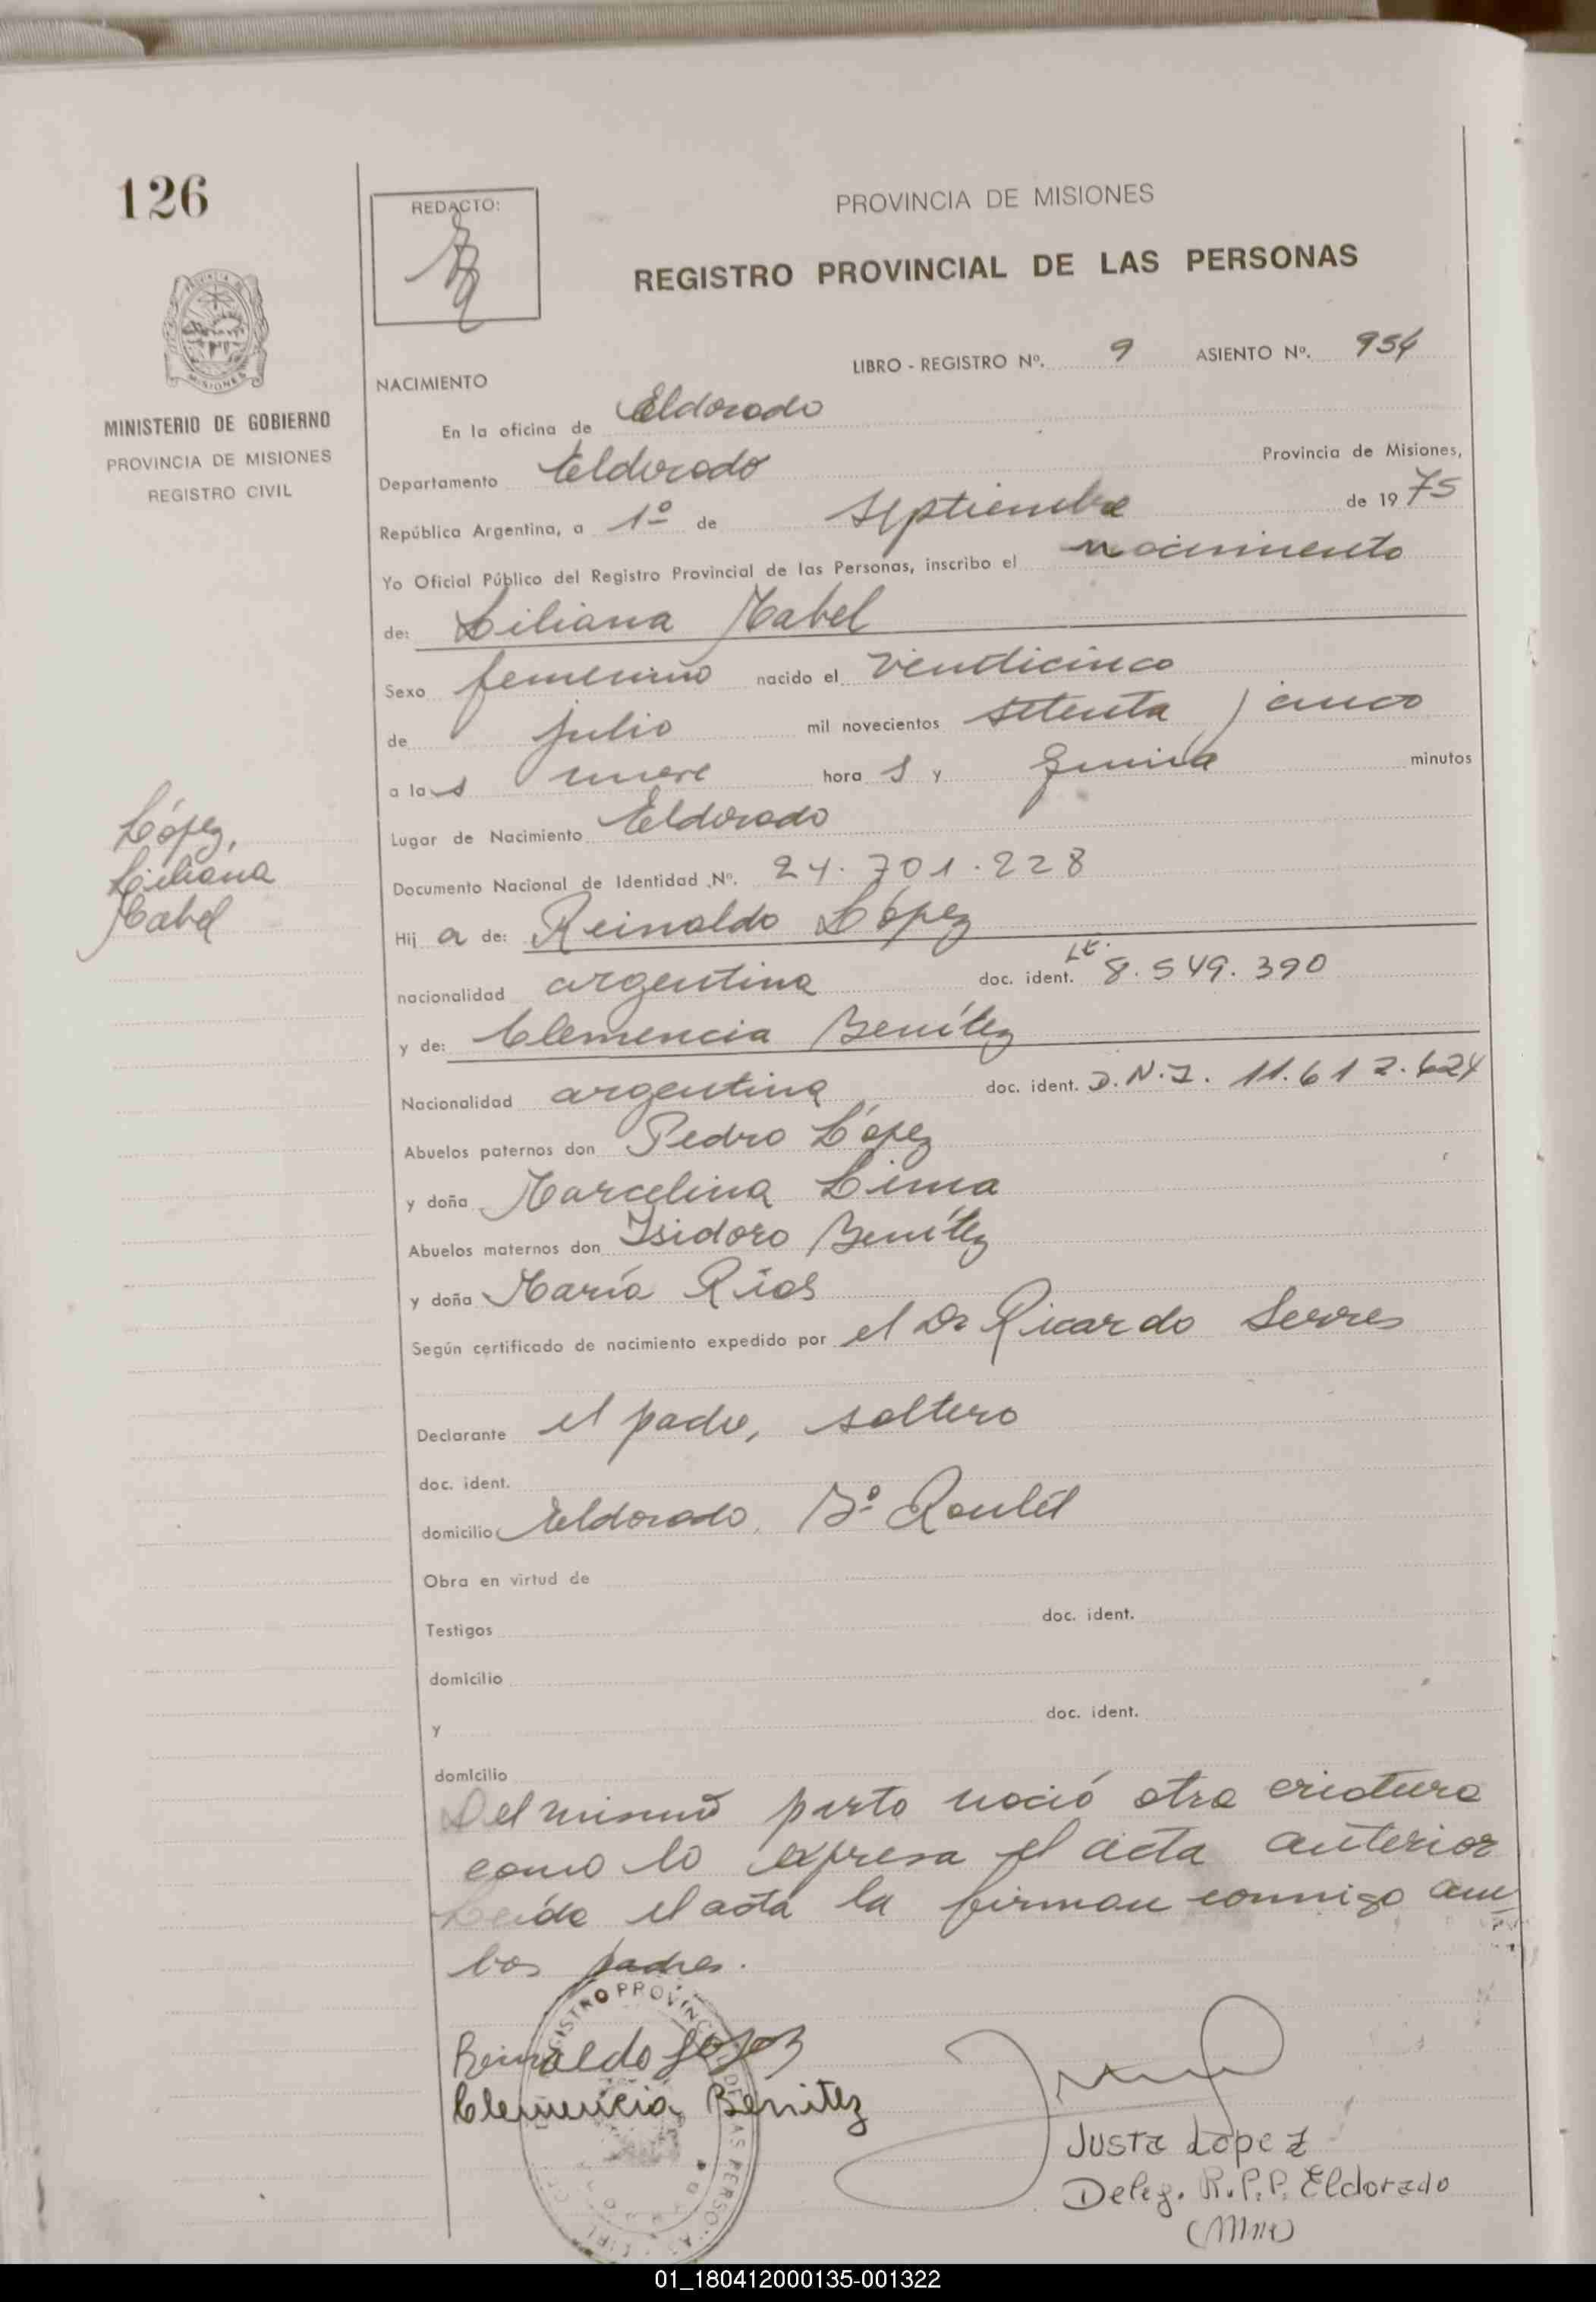 126
REDACTO:
PROVINCIA DE MISIONES
REGISTRO PROVINCIAL DE LAS PERSONAS
MISIONES
MINISTERIO DE GOBIERNO
PROVINCIA DE MISIONES
REGISTRO CIVIL
LIBRO - REGISTRO Nº. 9 ASIENTO Nº. 954
NACIMIENTO
En la oficina de Eldorado
Departamento Eldorado Provincia de Misiones,
República Argentina, a 1º de septiembre de 1975
Yo Oficial Público del Registro Provincial de las Personas, inscribo el nacimiento
de: Liliana Mabel
Sexo femenino nacido el veinticinco
de julio mil novecientos setenta y cinco
a las nueve horas y quince minutos
Lugar de Nacimiento Eldorado
López,
Liliana
Mabel
Documento Nacional de Identidad Nº. 24.701.228
Hija de: Reinaldo López
nacionalidad argentina doc. ident. L.E. 8.549.390
y de: Clemencia Benítez
Nacionalidad argentina doc. ident. D.N.I. 11.612.624
Abuelos paternos don Pedro López
y doña Marcelina Lima
Abuelos maternos don Isidoro Benítez
y doña María Ríos
Según certificado de nacimiento expedido por el Dr Ricardo Serres
Declarante el padre, soltero
doc. ident.
domicilio Eldorado, Bº
Obra en virtud de
Testigos doc. ident.
domicilio
y doc. ident.
domicilio
Del mismo parto nació otra criatura
como lo expresa el acta anterior
Leída el acta la firman conmigo am
bos padres.
Reinaldo Lopez
Clemencia Benitez
Justa Lopez
Deleg. R.P.P. Eldorado
(Mnes)
01_180412000135-001322